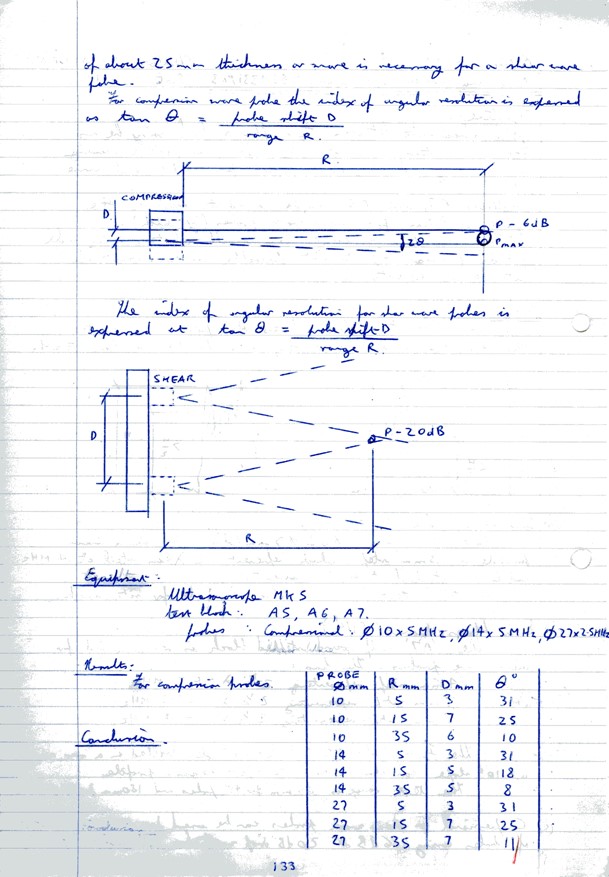 of about 25 mm thickness or more is necessary for a shear wave
probe.
For compression wave probe the index of angular resolution is expressed
as tan θ = probe shift D
range R.
R.
COMPRESSION
D
P - 6dB
P MAX
2θ
The index of angular resolution for shear wave probes is
expressed at tan θ = probe shift D
range R.
SHEAR
D
P - 20dB
R
Equipment:
Ultrasonoscope MK5
test block: A5, A6, A7.
probes : Compressional: Ø10 x 5MHz, Ø14 x 5MHz, Ø27 x 2.5MHz
Results:
For compression probes.
PROBE
Ø mm R mm D mm θ°
10 5 3 31
10 15 7 25
10 35 6 10
Conclusion.
14 5 3 31
14 15 5 18
14 35 5 8
27 5 3 31
27 15 7 25
27 35 7 11
133